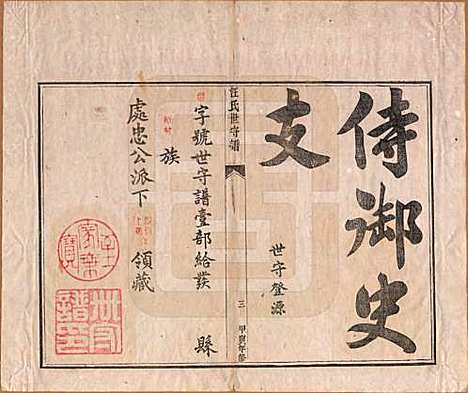 侍御史
支
世守登源
汪氏世守譜
三
字號世守譜壹部給發
縣
族
處忠公派下
領藏